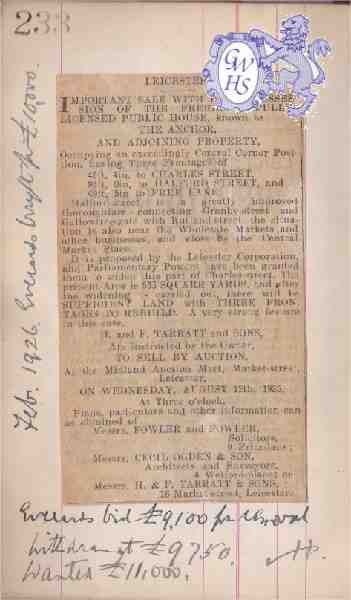 233
GWHS
LEICESTER
IMPORTANT SALE WITH POSSES-
SION OF THE FREEHOLD FULLY
LICENSED PUBLIC HOUSE, known as
THE ANCHOR,
AND ADJOINING PROPERTY,
Occupying an exceedingly Central Corner Posi-
tion, having Three Frontages of
to CHARLES STREET,
to HALFORD STREET, and
to FREE LANE.
Halford-street is a greatly improved
thoroughfare connecting Granby-street and
Gallowtreegate with Rutland-street, the situa-
tion is also near the Wholesale Markets and
other businesses, and close by the Central
Market Place.
It is proposed by the Leicester Corporation,
and Parliamentary Powers have been granted
them to widen this part of Charles-street. The
present Area is 533 SQUARE YARDS, and after
the widening is carried out, there will be
SUPERFINE LAND with THREE FRON-
TAGES TO REBUILD. A very strong feature
in this sale.
H. and F. TARRATT and SONS,
Are instructed by the Owner,
TO SELL BY AUCTION,
At the Midland Auction Mart, Market-street,
Leicester,
ON WEDNESDAY, AUGUST 1925,
At Three o'clock.
Plans, particulars and other information can
be obtained of
Messrs. FOWLER and FOWLER,
Solicitors,
Messrs. CECIL OGDEN & SON,
Architects and Surveyors,
Messrs. H. & F. TARRATT & SONS,
16 Market street, Leicester.
Feb. 1926. Everards bought for £10,000.
Everards bid £9,100 for removal
withdrawn at £9750.
Wanted £11,000.